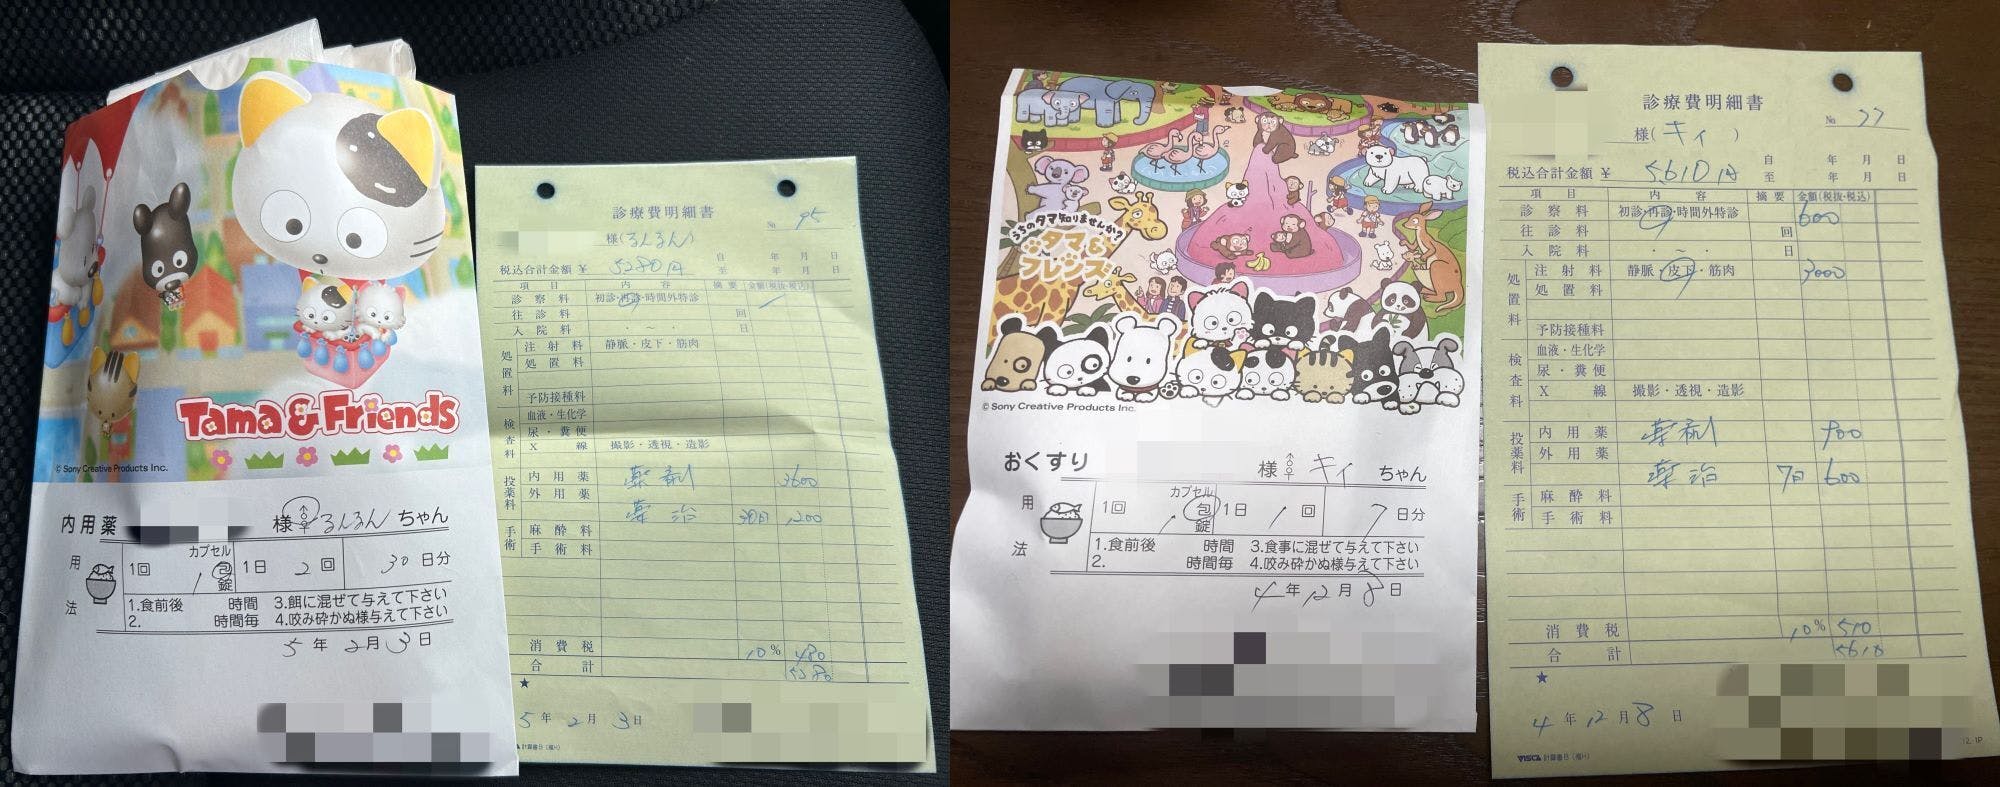 Tama & Friends
© Sony Creative Products Inc.
内用薬
様 ♂♀ るんるん ちゃん
用法
1回 1 カプセル 包 錠 1日 2 回 30 日分
1.食前後 時間 3.餌に混ぜて与えて下さい
2. 時間毎 4.咬み砕かぬ様与えて下さい
5 年 2 月 3 日
診療費明細書
№ 95
様(るんるん)
税込合計金額 ¥ 5280円
自 年 月 日
至 年 月 日
項 目 内 容 摘 要 金額(税抜・税込)
診察料 初診・再診・時間外特診
往診料 回
入院料 ・ ～ ・ 日
処置料
注射料 静脈・皮下・筋肉
処置料
予防接種料
検査料
血液・生化学
尿・糞便
X 線 撮影・透視・造影
投薬料
内用薬 薬剤 3600
外用薬
薬治 30日 1200
手術
麻酔料
手術料
消費税 10% 480
合計 5280
★
5 年 2 月 3 日
計算書B(複H)
うちのタマ知りませんか?
タマ&フレンズ
© Sony Creative Products Inc.
おくすり
様 ♂♀ キィ ちゃん
用法
1回 1 カプセル 包 錠 1日 1 回 7 日分
1.食前後 時間 3.食事に混ぜて与えて下さい
2. 時間毎 4.咬み砕かぬ様与えて下さい
4 年 12 月 8 日
診療費明細書
№ 77
様(キィ)
税込合計金額 ¥ 5610円
自 年 月 日
至 年 月 日
項 目 内 容 摘 要 金額(税抜・税込)
診察料 初診・再診・時間外特診 600
往診料 回
入院料 ・ ～ ・ 日
処置料
注射料 静脈・皮下・筋肉 3000
処置料
予防接種料
検査料
血液・生化学
尿・糞便
X 線 撮影・透視・造影
投薬料
内用薬 薬剤 900
外用薬
薬治 7日 600
手術
麻酔料
手術料
消費税 10% 510
合計 5610
★
4 年 12 月 8 日
VISCA 計算書B(複H)
12. 1P